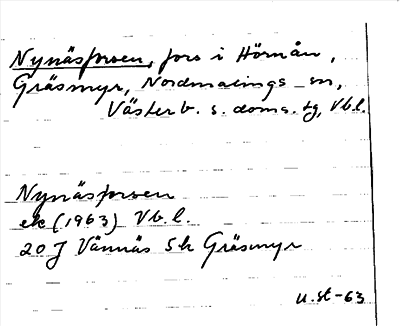 Nynäsforsen, fors i Hörnån,
Gräsmyr, Nordmalings sn,
Västerb. s. doms. tg, Vb.l.
Nynäsforsen
ek (1963) Vb.l.
20 J Vännäs Sk Gräsmyr
u.st-63